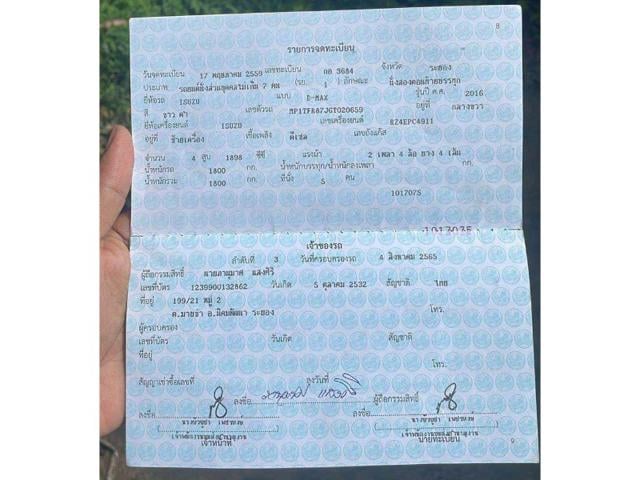 8
รายการจดทะเบียน
วันจดทะเบียน 17 พฤษภาคม 2559 เลขทะเบียน กอ 3684 จังหวัด ระยอง
ประเภท รถยนต์นั่งส่วนบุคคลไม่เกิน 7 คน (รย. 1 ) ลักษณะ นั่งสองตอนท้ายบรรทุก
ยี่ห้อรถ ISUZU แบบ D-MAX รุ่นปี ค.ศ. 2016
สี ขาว ดำ เลขตัวรถ MP1TFR87JGT020659 อยู่ที่ กลางขวา
ยี่ห้อเครื่องยนต์ ISUZU เลขเครื่องยนต์ RZ4EPC4911
อยู่ที่ ซ้ายเครื่อง เชื้อเพลิง ดีเซล เลขถังแก๊ส
จำนวน 4 สูบ 1898 ซีซี แรงม้า 2 เพลา 4 ล้อ ยาง 4 เส้น
น้ำหนักรถ 1800 กก. น้ำหนักบรรทุก/น้ำหนักลงเพลา กก.
น้ำหนักรวม 1800 กก. ที่นั่ง 5 คน
1017075
เจ้าของรถ
ลำดับที่ 3 วันที่ครอบครองรถ 4 สิงหาคม 2565
ผู้ถือกรรมสิทธิ์ นายภาณุมาศ แสงศิริ
เลขที่บัตร 1239900132862 วันเกิด 5 ตุลาคม 2532 สัญชาติ ไทย
ที่อยู่ 199/21 หมู่ 2
ต.มาบข่า อ.นิคมพัฒนา ระยอง โทร.
ผู้ครอบครอง
เลขที่บัตร วันเกิด สัญชาติ
ที่อยู่
โทร.
สัญญาเช่าซื้อเลขที่ ลงวันที่
ลงชื่อ ผู้ถือกรรมสิทธิ์
ลงชื่อ ลงชื่อ
เจ้าหน้าที่ นายทะเบียน
9